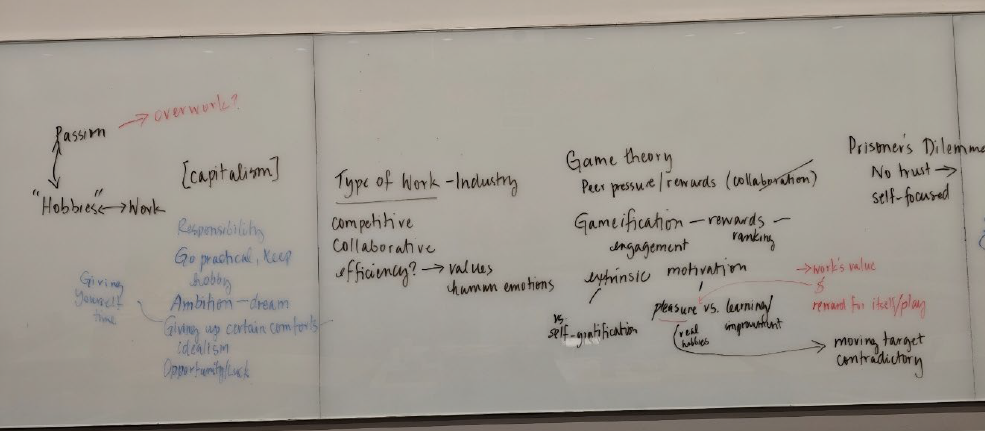 Passion → overwork?
"Hobbies" ↔ Work
[capitalism]
Responsibility
Go practical, keep
hobby
Ambition - dream
Giving up certain comforts
idealism
Opportunity/luck
Giving
yourself
time
Type of Work - Industry
competitive
collaborative
efficiency? → values
human emotions
Game theory
Peer pressure/rewards (collaboration)
Gameification - rewards -
ranking
engagement
extrinsic motivation
vs.
self-gratification
pleasure vs. learning/
improvement
(real
hobbies
→ work's value
&
reward for itself/play
→ moving target
contradictory
Prisoner's Dilemma
No trust →
self-focused